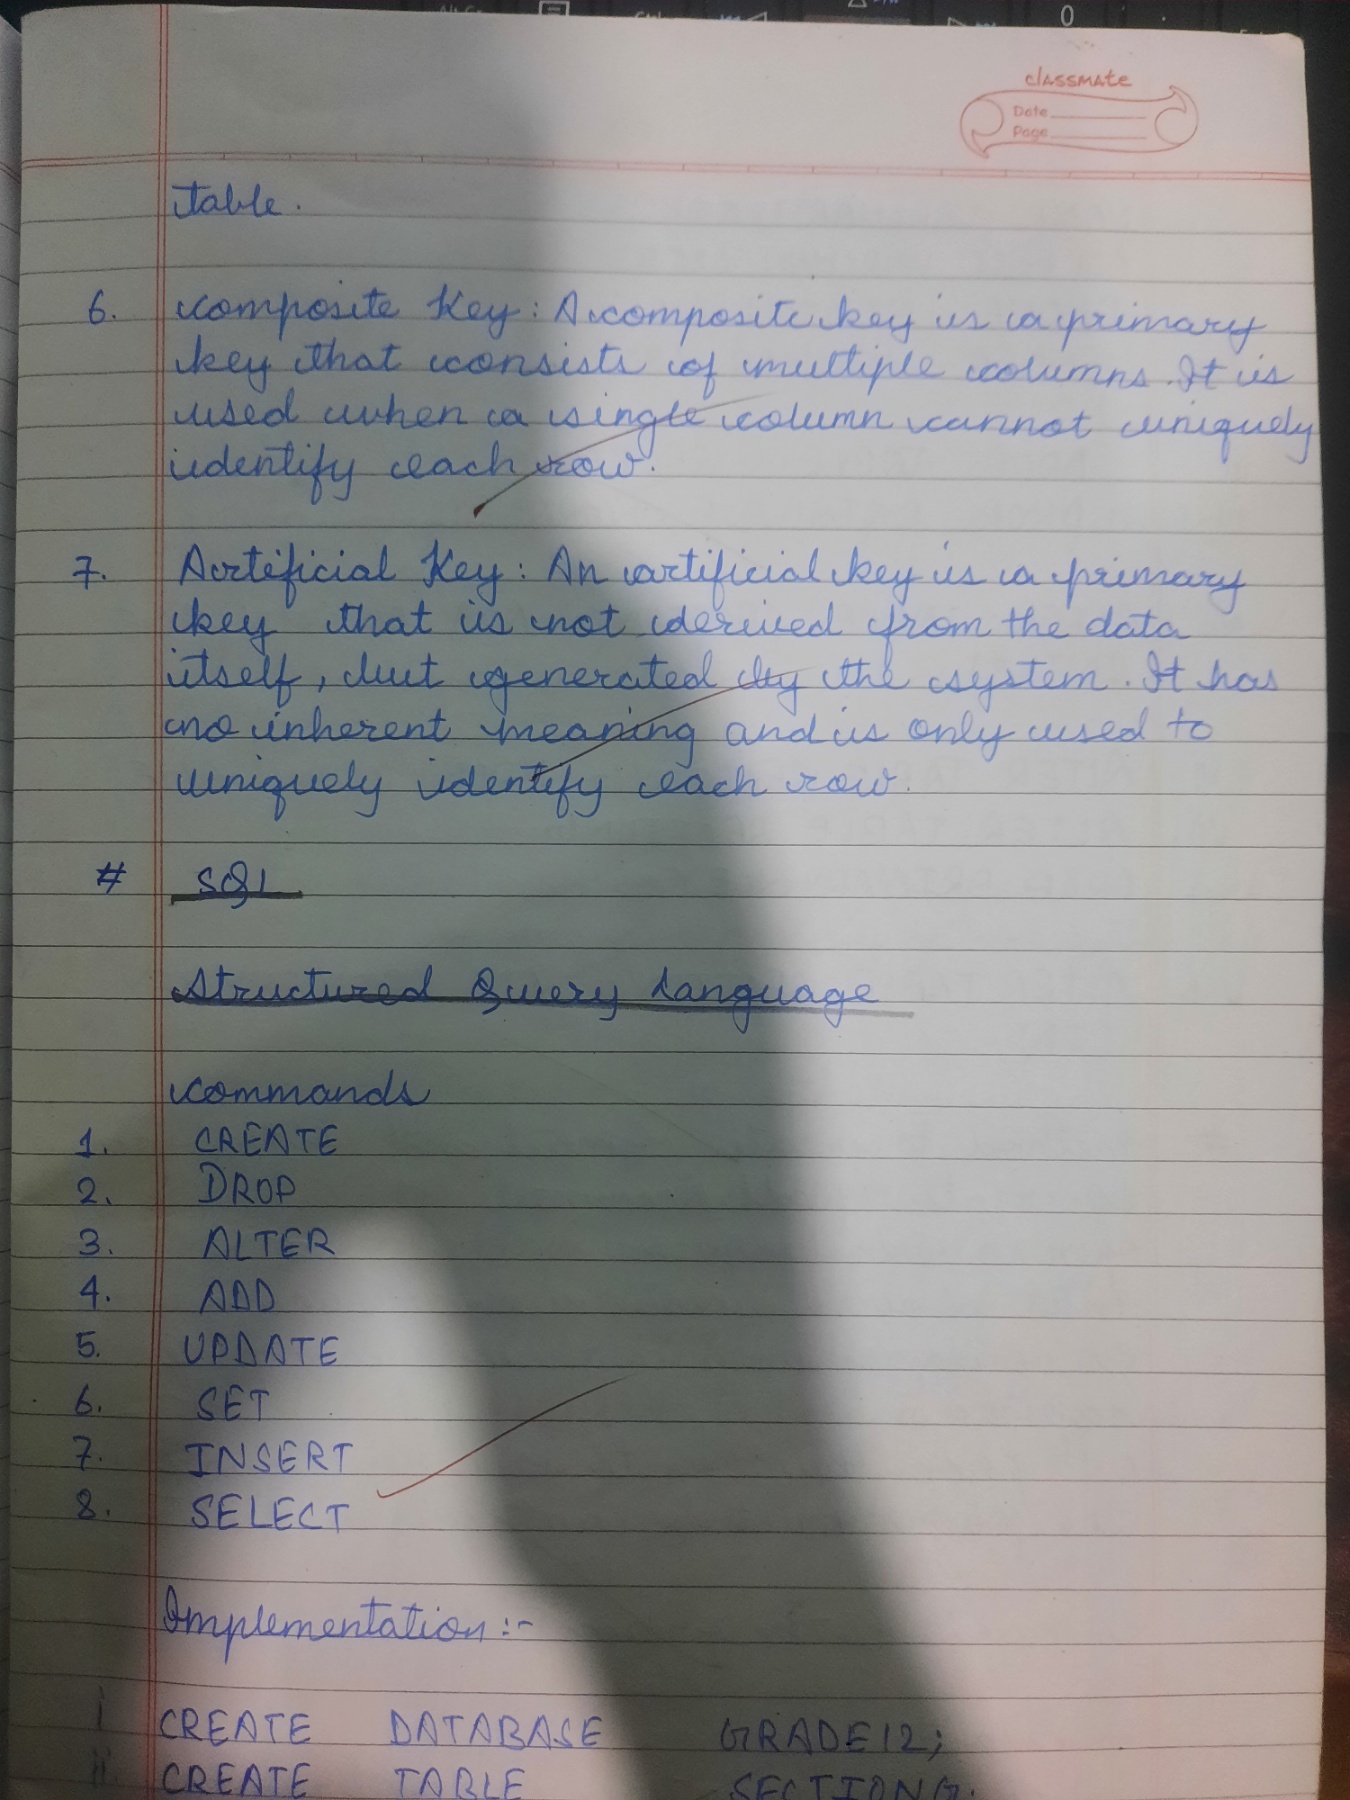 classmate
Date
Page
table.
6. Composite Key: A composite key is a primary
key that consists of multiple columns. It is
used when a single column cannot uniquely
identify each row.
7. Artificial Key: An artificial key is a primary
key that is not derived from the data
itself, but generated by the system. It has
no inherent meaning and is only used to
uniquely identify each row.
# SQL
Structured Query Language
Commands
1. CREATE
2. DROP
3. ALTER
4. ADD
5. UPDATE
6. SET
7. INSERT
8. SELECT
Implementation :-
i CREATE DATABASE GRADE12;
ii. CREATE TABLE